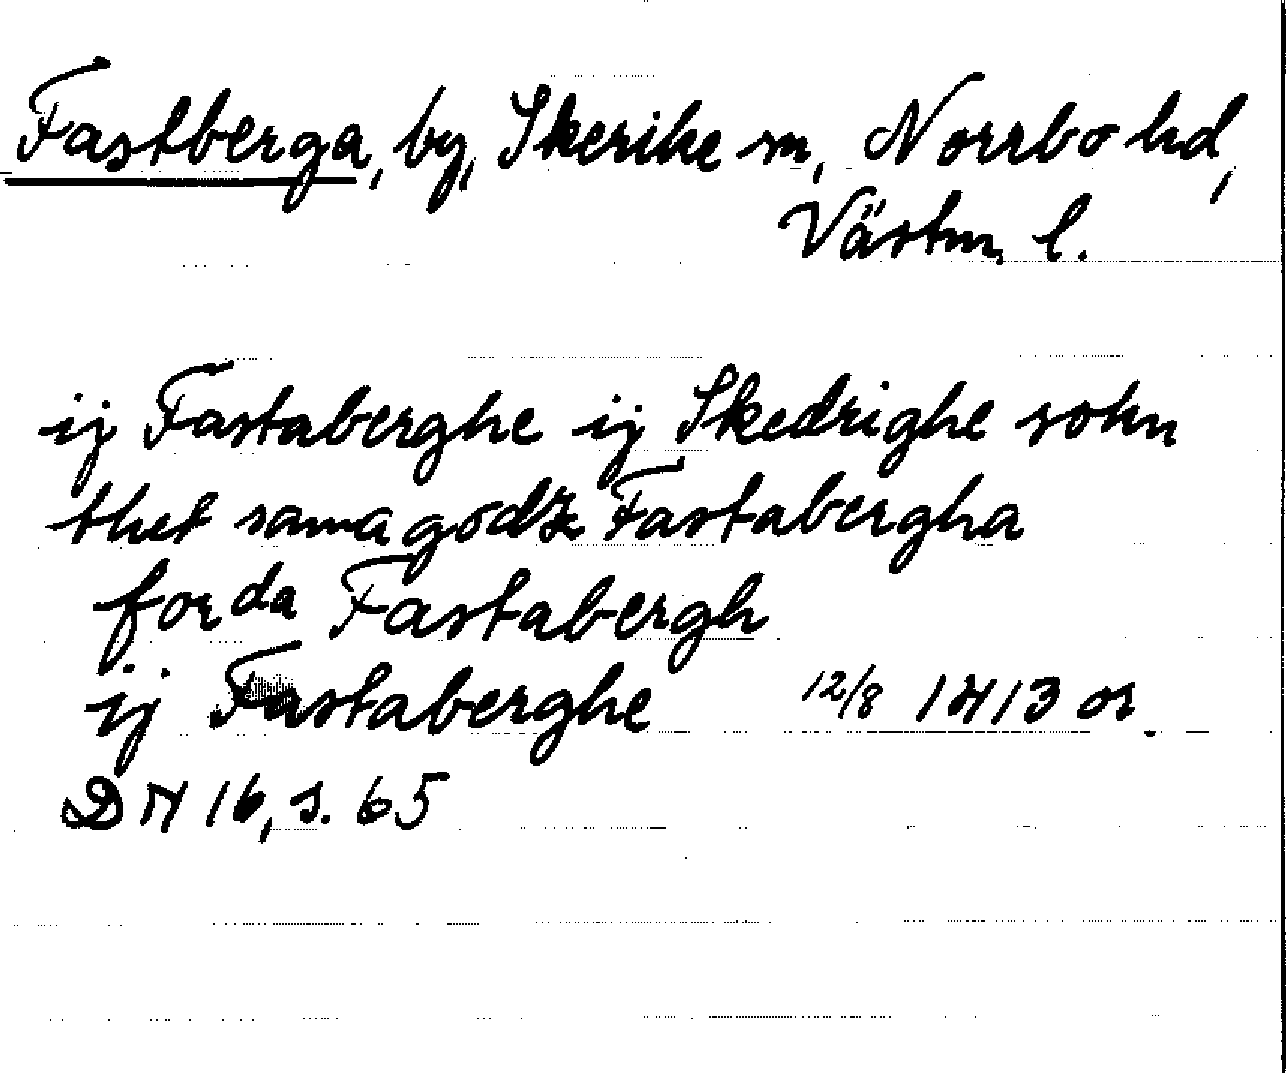 Fastberga, by, Skerike sn, Norrbo hd,
Västm. l.
ij Fastaberghe ij Skedrighe sokn
thet sama godz Fastabergha
for da Fastabergh
ij Fastaberghe 12/8 1413 or.
DN 16, s. 65